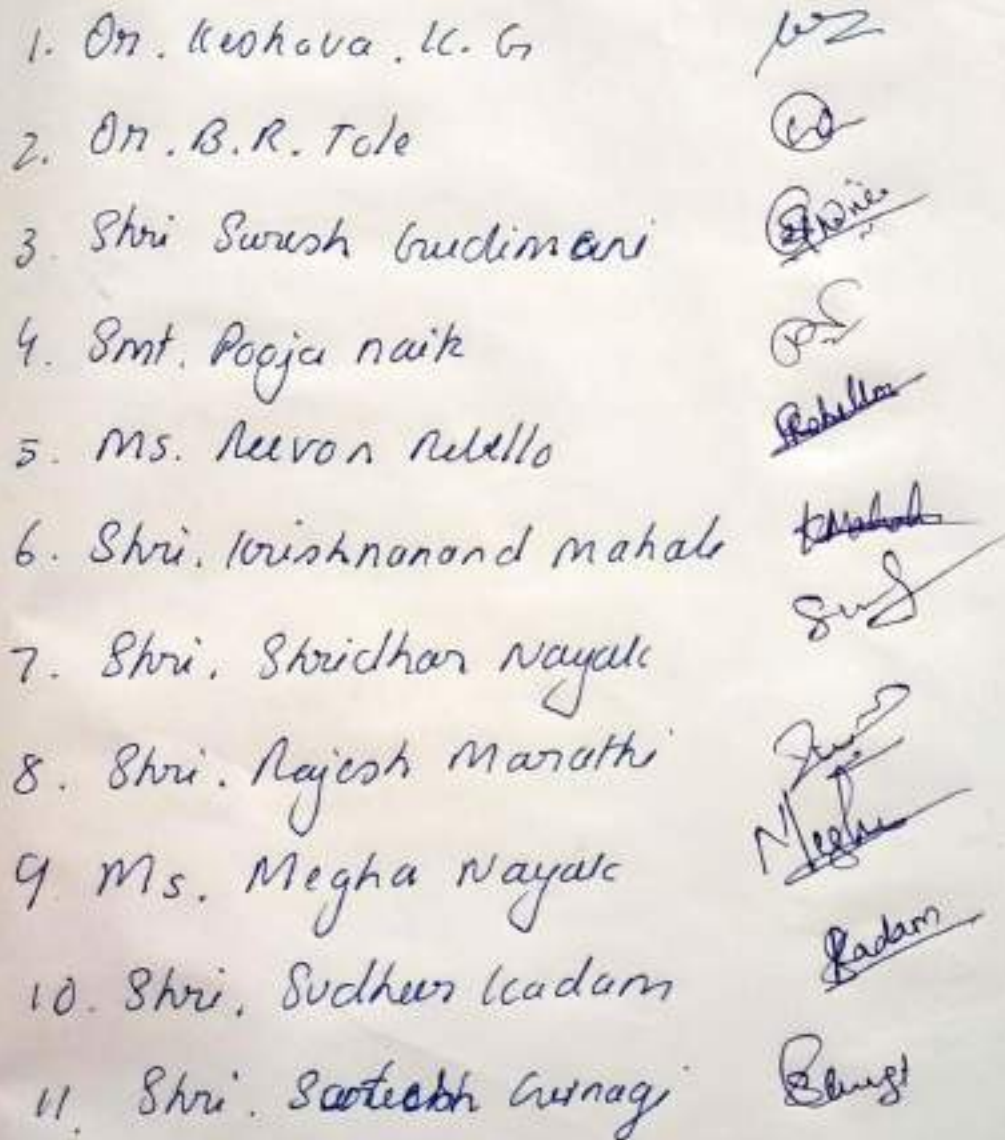 1. Dr. Keshava. K. G
2. Dr. B.R. Tole
3. Shri Suresh Gudimani
4. Smt. Pooja naik
5. Ms. Reevon Rebello Rebello
6. Shri. Krishnanand Mahale KMahale
7. Shri. Shridhar Nayak
8. Shri. Rajesh Marathi
9. Ms. Megha Nayak Megha
10. Shri. Sudheer Kadam Kadam
11. Shri.